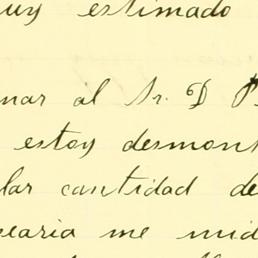 uy estimado
nar al Sr. D P
estoy desmont
lar cantidad de
earia me mid